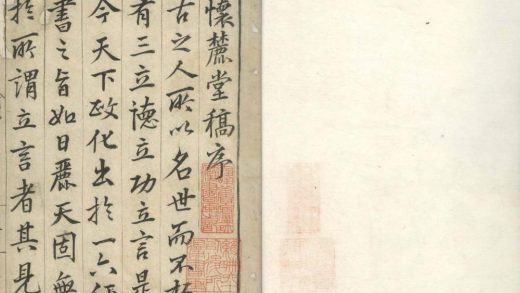 懷麓堂稿序
古之人所以名世而不朽
有三立德立功立言是
今天下政化出於一六經
書之旨如日麗天固無
於所謂立言者其見